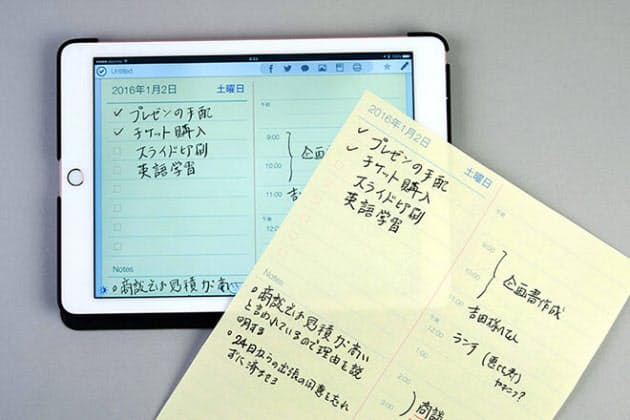 Untitled
2016年1月2日 土曜日
✓ プレゼンの手配
✓ チケット購入
スライド印刷
英語学習
午前
9:00
10:00
企画
11:00
吉
午後
12:00
Notes
○商談では見積が高い
2016年1月2日 土曜日
✓ プレゼンの手配
✓ チケット購入
スライド印刷
英語学習
午前
9:00
10:00
企画書作成
11:00
吉田様
午後
12:00
ランチ (恵比寿)
1:00
2:00
商談
Notes
○商談では見積が高い
と言われているので理由を説
明する
○24日からの出張の用意を忘れ
ずに済ませる